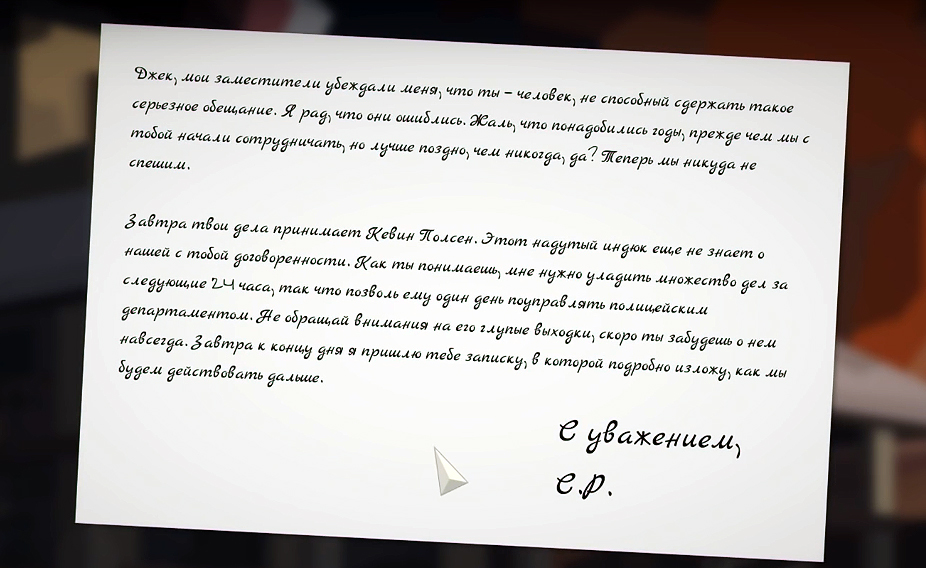 Джек, мои заместители убеждали меня, что ты – человек, не способный сдержать такое
серьезное обещание. Я рад, что они ошиблись. Жаль, что понадобились годы, прежде чем мы с
тобой начали сотрудничать, но лучше поздно, чем никогда, да? Теперь мы никуда не
спешим.
Завтра твои дела принимает Кевин Полсен. Этот надутый индюк еще не знает о
нашей с тобой договоренности. Как ты понимаешь, мне нужно уладить множество дел за
следующие 24 часа, так что позволь ему один день поуправлять полицейским
департаментом. Не обращай внимания на его глупые выходки, скоро ты забудешь о нем
навсегда. Завтра к концу дня я пришлю тебе записку, в которой подробно изложу, как мы
будем действовать дальше.
С уважением,
С.Р.